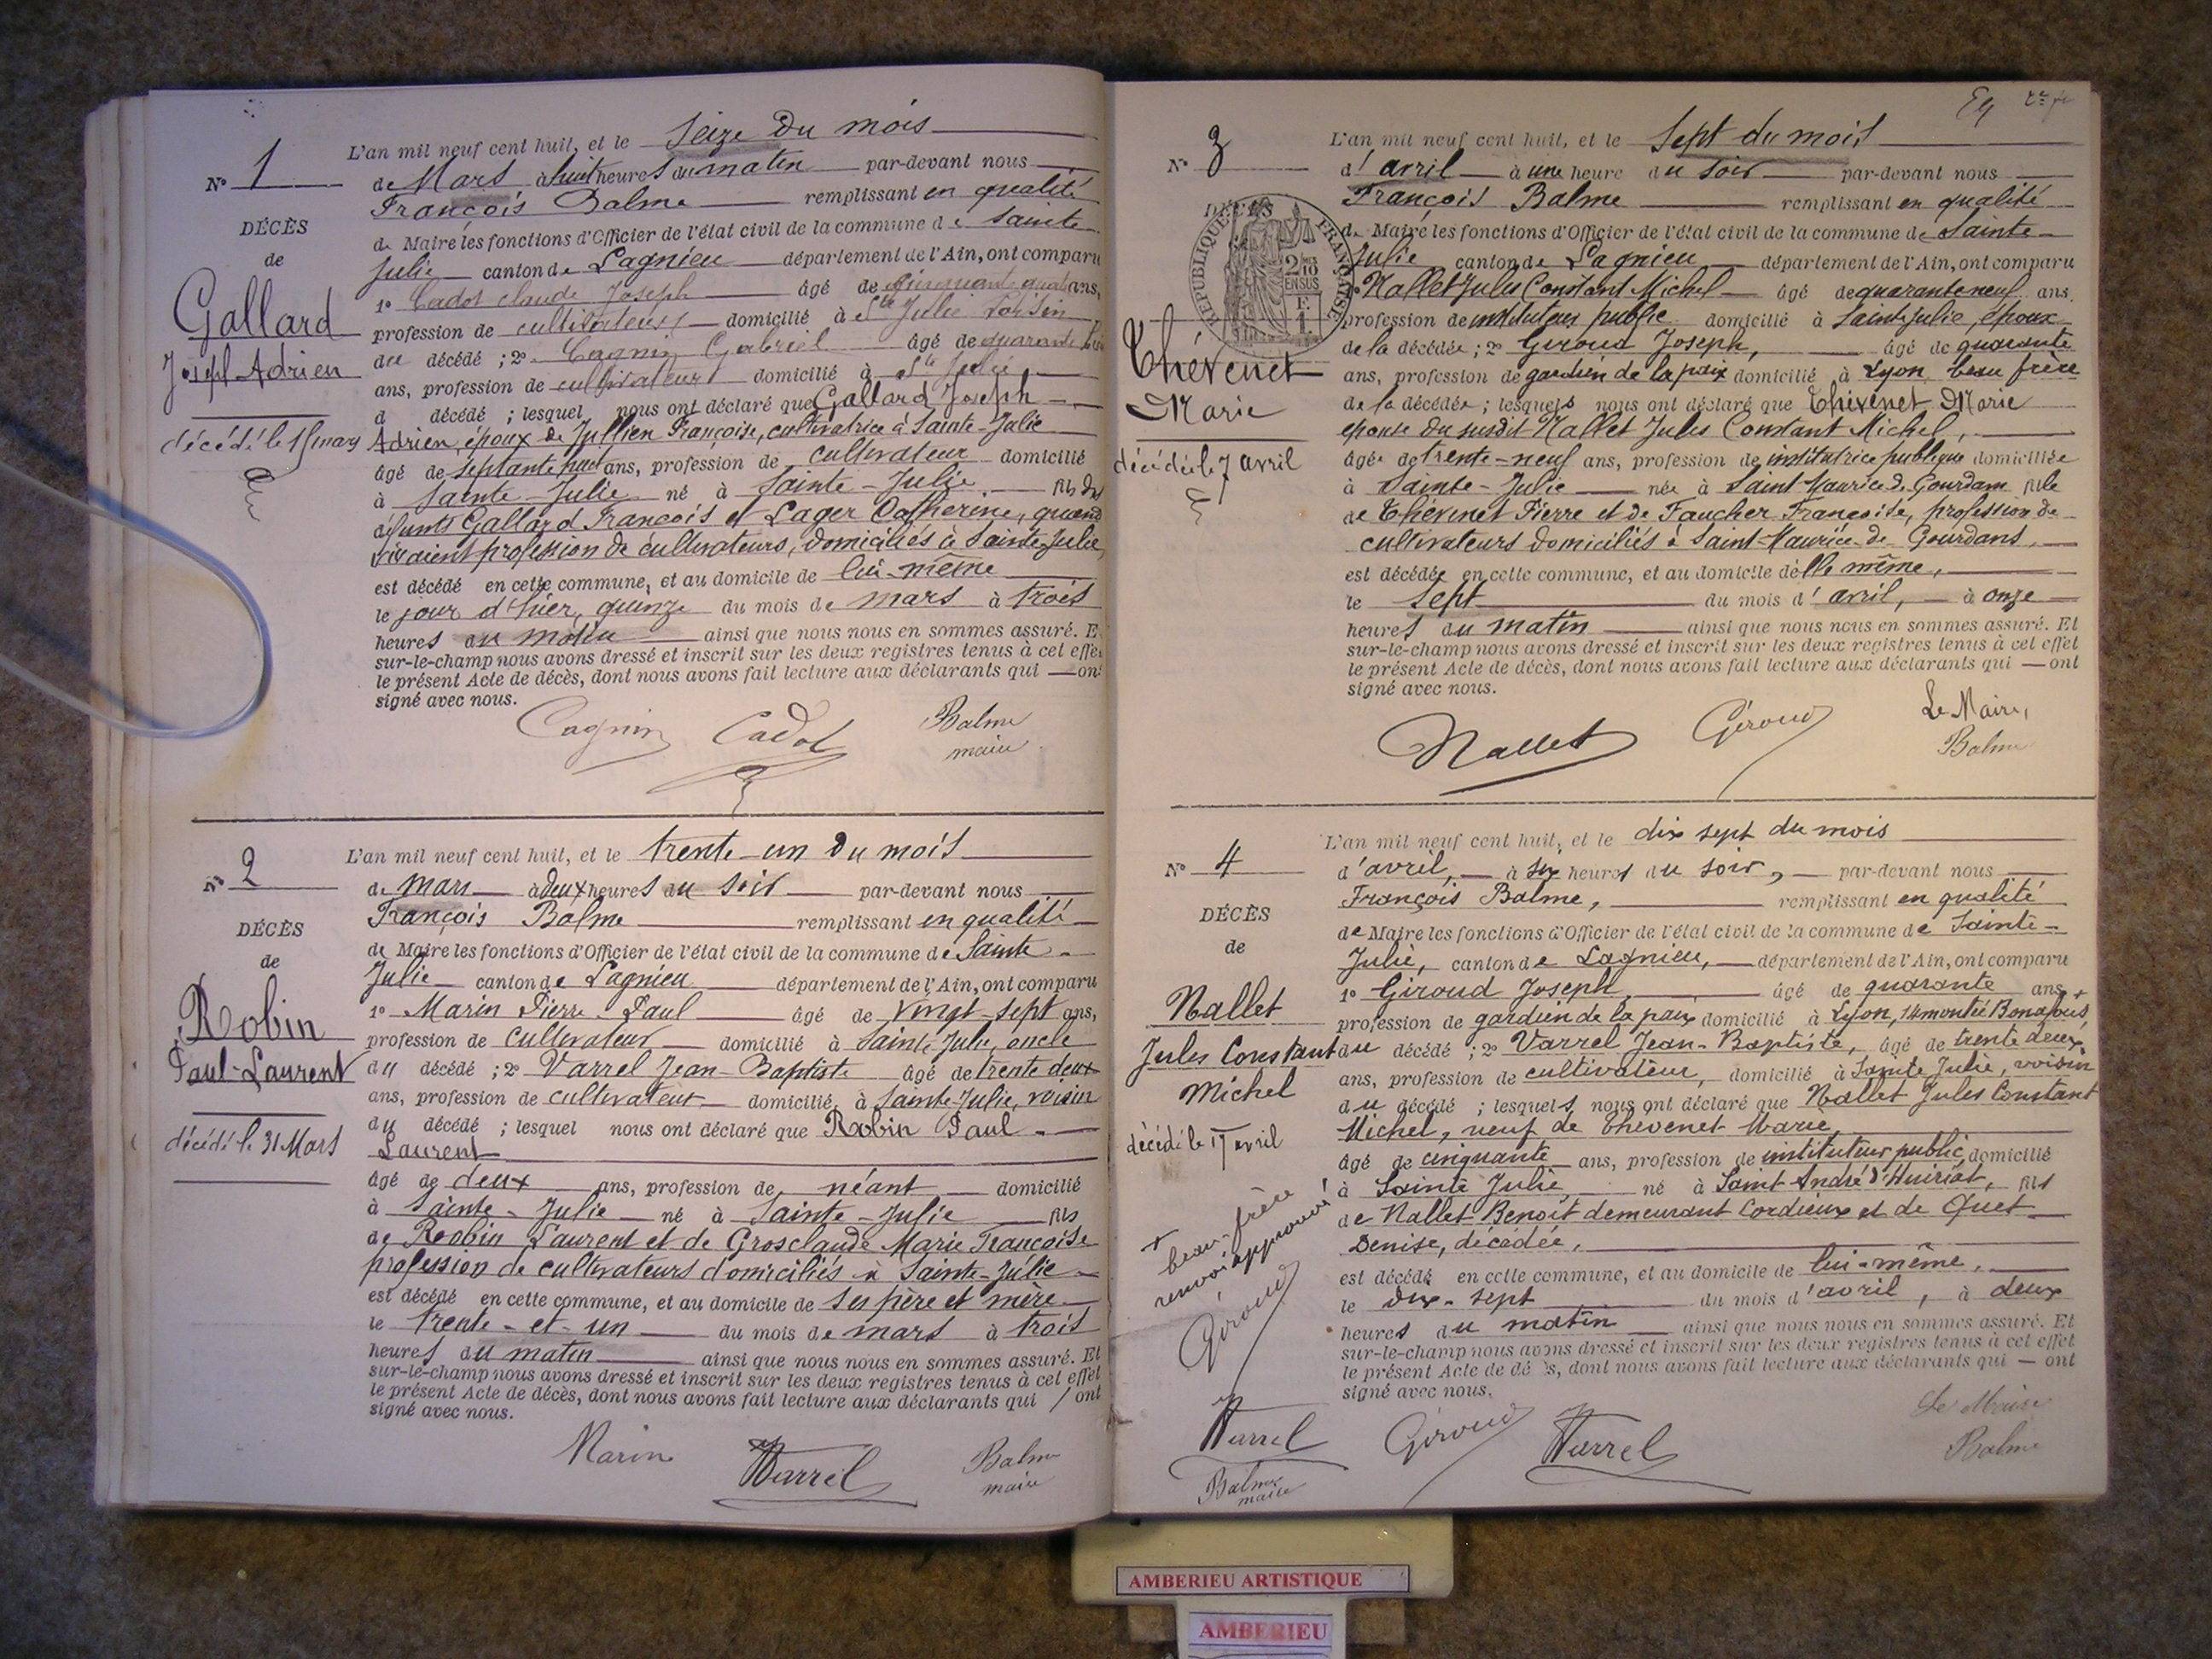 N° 1
DÉCÈS
de
Gallard
Joseph Adrien
décédé le 15 mars
L'an mil neuf cent huit, et le seize du mois
de Mars à huit heures du matin par-devant nous
François Balme remplissant en qualité
de Maire les fonctions d'Officier de l'état civil de la commune de Sainte
Julie canton de Lagnieu département de l'Ain, ont comparu
1° Cadot Claude Joseph âgé de cinquante quatre ans,
profession de cultivateur domicilié à Ste Julie voisin
du décédé ; 2° Cagnin Gabriel âgé de quarante
ans, profession de cultivateur domicilié à Ste Julie
d décédé ; lesquel nous ont déclaré que Gallard Joseph
Adrien, époux de Jullien Françoise, cultivatrice à Sainte-Julie
âgé de septante huit ans, profession de cultivateur domicilié
à Sainte-Julie né à Sainte-Julie. fils des
défunts Gallard François et Lager Catherine, quand
vivaient profession de cultivateurs, domiciliés à Sainte-Julie,
est décédé en cette commune, et au domicile de lui-même
le jour d'hier, quinze du mois de mars à trois
heures du matin ainsi que nous nous en sommes assuré. Et
sur-le-champ nous avons dressé et inscrit sur les deux registres tenus à cet effet
le présent Acte de décès, dont nous avons fait lecture aux déclarants qui — ont
signé avec nous.
Cagnin Cadot Balme
maire
N° 2
DÉCÈS
de
Robin
Paul-Laurent
décédé le 31 Mars
L'an mil neuf cent huit, et le trente-un du mois
de mars à deux heures du soir par-devant nous
François Balme remplissant en qualité
de Maire les fonctions d'Officier de l'état civil de la commune de Sainte
Julie canton de Lagnieu département de l'Ain, ont comparu
1° Marin Pierre Paul âgé de vingt-sept ans,
profession de cultivateur domicilié à Sainte Julie, oncle
du décédé ; 2° Varrel Jean-Baptiste âgé de trente deux
ans, profession de cultivateur domicilié à Sainte-Julie, voisin
du décédé ; lesquel nous ont déclaré que Robin Paul
Laurent
âgé de deux ans, profession de néant domicilié
à Sainte-Julie né à Sainte-Julie fils
de Robin Laurent et de Grosclaude Marie Françoise
profession de cultivateurs domiciliés à Sainte-Julie
est décédé en cette commune, et au domicile de ses père et mère
le trente-et-un du mois de mars à trois
heures du matin ainsi que nous nous en sommes assuré. Et
sur-le-champ nous avons dressé et inscrit sur les deux registres tenus à cet effet
le présent Acte de décès, dont nous avons fait lecture aux déclarants qui / ont
signé avec nous.
Marin Varrel Balme
maire
N° 3
DÉCÈS
RÉPUBLIQUE FRANÇAISE
2/10 EN SUS
Thévenet
Marie
décédée le 7 avril
L'an mil neuf cent huit, et le sept du mois
d'avril à une heure du soir par-devant nous
François Balme remplissant en qualité
de Maire les fonctions d'Officier de l'état civil de la commune de Sainte-
Julie canton de Lagnieu département de l'Ain, ont comparu
1° Nallet Jules Constant Michel âgé de quarante neuf ans,
profession de instituteur public domicilié à Sainte Julie, époux
de la décédée ; 2° Giroud Joseph, âgé de quarante
ans, profession de gardien de la paix domicilié à Lyon beau frère
de la décédée ; lesquels nous ont déclaré que Thévenet Marie
épouse du susdit Nallet Jules Constant Michel,
âgée de trente-neuf ans, profession de institutrice publique domiciliée
à Sainte-Julie née à Saint Maurice de Gourdans fille
de Thévenet Pierre et de Faucher Françoise, profession de
cultivateurs domiciliés à Saint-Maurice de Gourdans,
est décédée en cette commune, et au domicile d'elle même,
le sept du mois d'avril, à onze
heures du matin ainsi que nous nous en sommes assuré. Et
sur-le-champ nous avons dressé et inscrit sur les deux registres tenus à cet effet
le présent Acte de décès, dont nous avons fait lecture aux déclarants qui — ont
signé avec nous.
Nallet Giroud Le Maire,
Balme
N° 4
DÉCÈS
de
Nallet
Jules Constant
Michel
décédé le 17 avril
L'an mil neuf cent huit, et le dix sept du mois
d'avril, à six heures du soir, par-devant nous
François Balme, remplissant en qualité
de Maire les fonctions d'Officier de l'état civil de la commune de Sainte-
Julie, canton de Lagnieu, département de l'Ain, ont comparu
1° Giroud Joseph, âgé de quarante ans, +
profession de gardien de la paix domicilié à Lyon, 14 montée Bonafous,
du décédé ; 2° Varrel Jean-Baptiste, âgé de trente deux
ans, profession de cultivateur, domicilié à Sainte Julie, voisin
du décédé ; lesquels nous ont déclaré que Nallet Jules Constant
Michel, veuf de Thévenet Marie,
âgé de cinquante ans, profession de instituteur public, domicilié
à Sainte Julie né à Saint André d'Huiriat, fils
de Nallet Benoît demeurant Cordieux et de Quet
Denise, décédée,
est décédé en cette commune, et au domicile de lui-même,
le dix-sept du mois d'avril, à deux
heures du matin ainsi que nous nous en sommes assuré. Et
sur-le-champ nous avons dressé et inscrit sur les deux registres tenus à cet effet
le présent Acte de décès, dont nous avons fait lecture aux déclarants qui — ont
signé avec nous.
+ beau-frère
renvoi approuvé
Giroud
Varrel
Balme
maire
Giroud Varrel Le Maire
Balme
AMBERIEU ARTISTIQUE
AMBERIEU